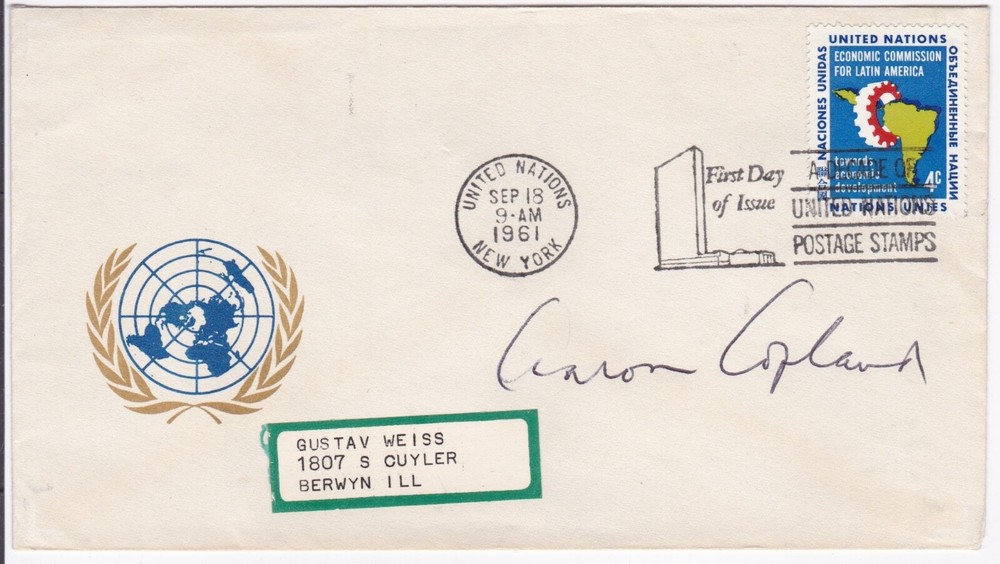 UNITED NATIONS
ECONOMIC COMMISSION
FOR LATIN AMERICA
NACIONES UNIDAS
ОБЪЕДИНЕННЫЕ НАЦИИ
towards
economic
development
4c
NATIONS UNIES
UNITED NATIONS
SEP 18
9-AM
1961
NEW YORK
First Day
of Issue
A DECADE OF
UNITED NATIONS
POSTAGE STAMPS
Aaron Copland
GUSTAV WEISS
1807 S CUYLER
BERWYN ILL